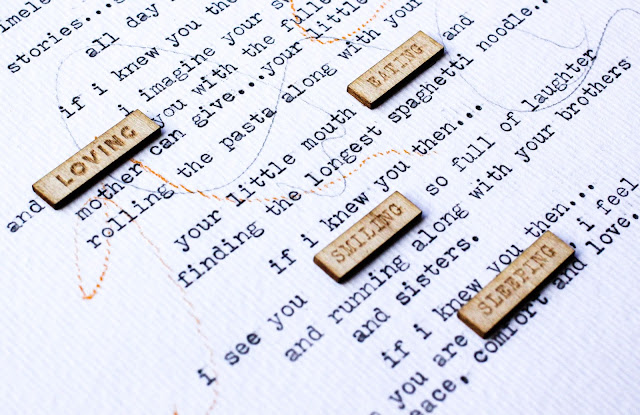 stories...
all day
if i knew you
i imagine your
and LOVING you with the
mother can give...your little
rolling the pasta along with your
your little mouth EATING and
finding the longest spaghetti noodle...
if i knew you then...
i see you SMILING so full of laughter
and running along with your brothers
and sisters.
if i knew you then...
you are SLEEPING, i feel
comfort and love.